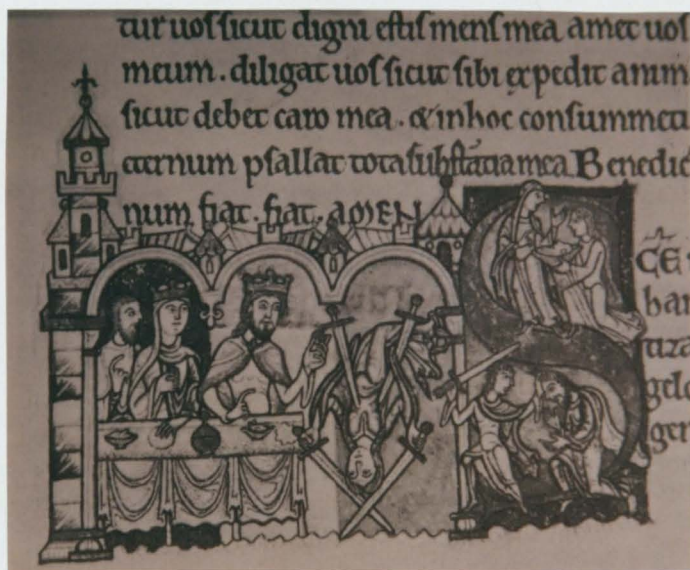 tur uos sicut digni estis mens mea. amet uos
meum. diligat uos sicut sibi expedit anim
sicut debet caro mea. & in hoc consummetu
eternum psallat tota substãtia mea. Benedic
num fiat. fiat. AMEN
S CE
bar
tura
gelo
ger